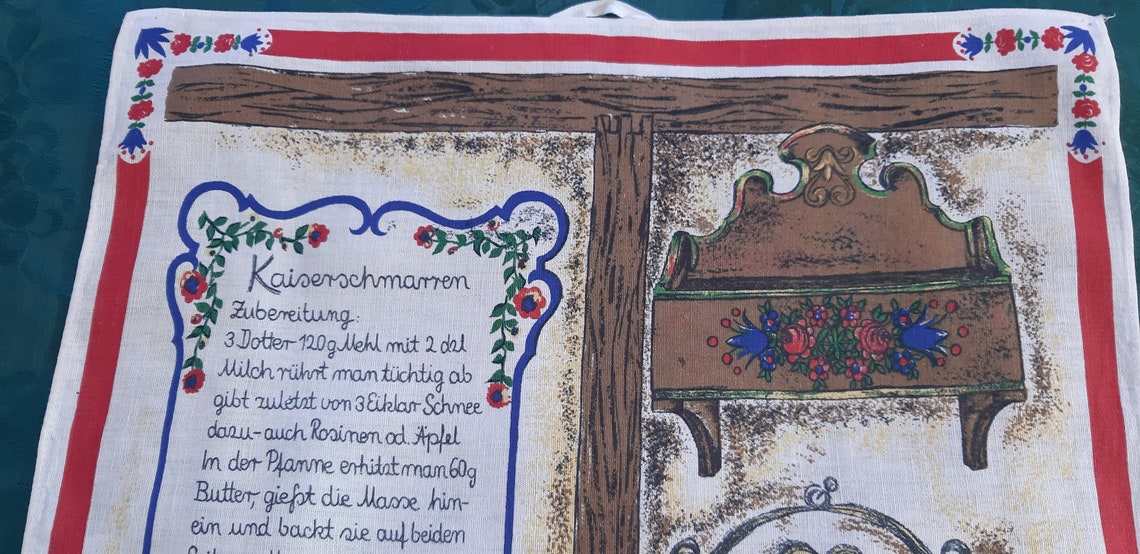 Kaiserschmarren
Zubereitung:
3 Dotter 120g Mehl mit 2 dzl
Milch rührt man tüchtig ab
gibt zuletzt von 3 Eiklar Schnee
dazu-auch Rosinen od. Äpfel
In der Pfanne erhitzt man 60g
Butter, gießt die Masse hin-
ein und backt sie auf beiden